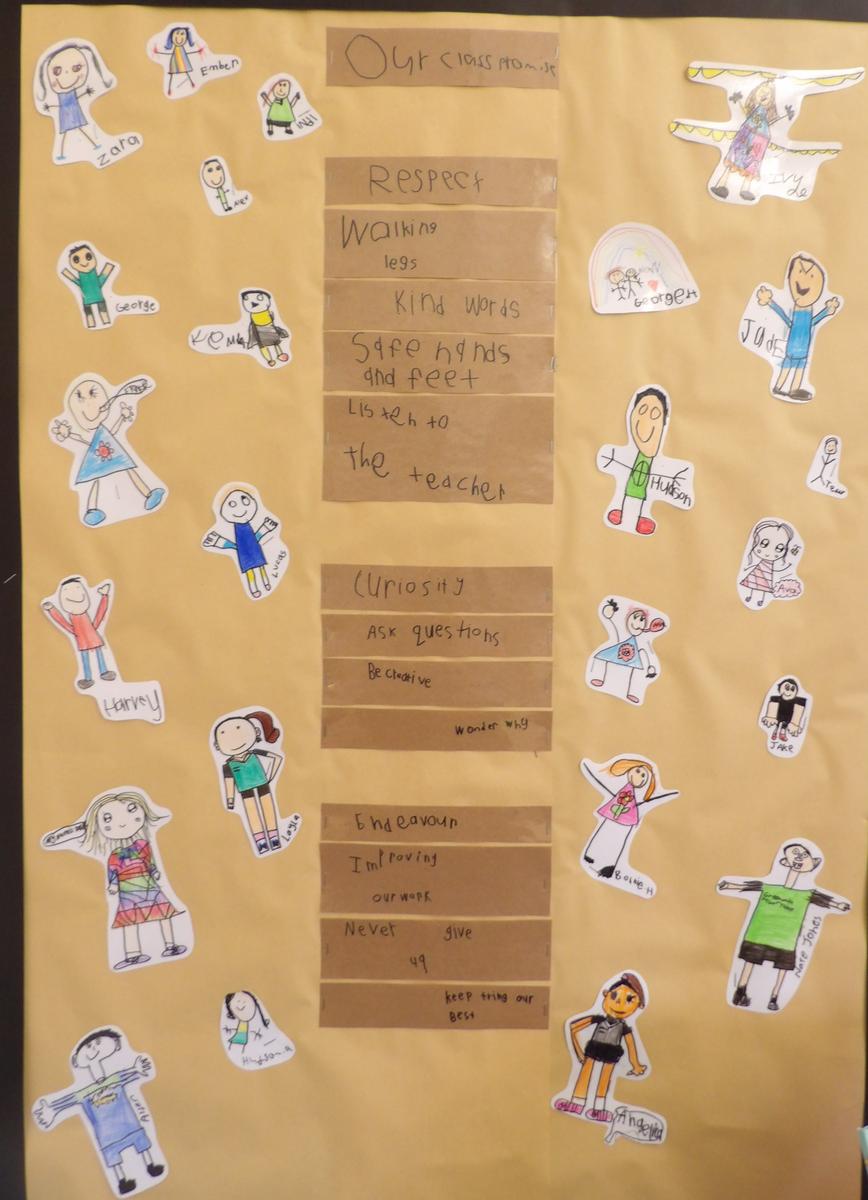 Our class promise
Respect
Walking
legs
Kind words
Safe hands
and feet
Listen to
the teacher
Curiosity
Ask questions
Be creative
wonder why
Endeavour
Improving
our work
Never give
up
keep tring our
Best
Zara
Ember
Alex
George
Lucas
Harvey
Layla
Ivy
Georgett
Jade
Hudson
Ava
JAKE
Bonnie H
Nate Jones
Angelia